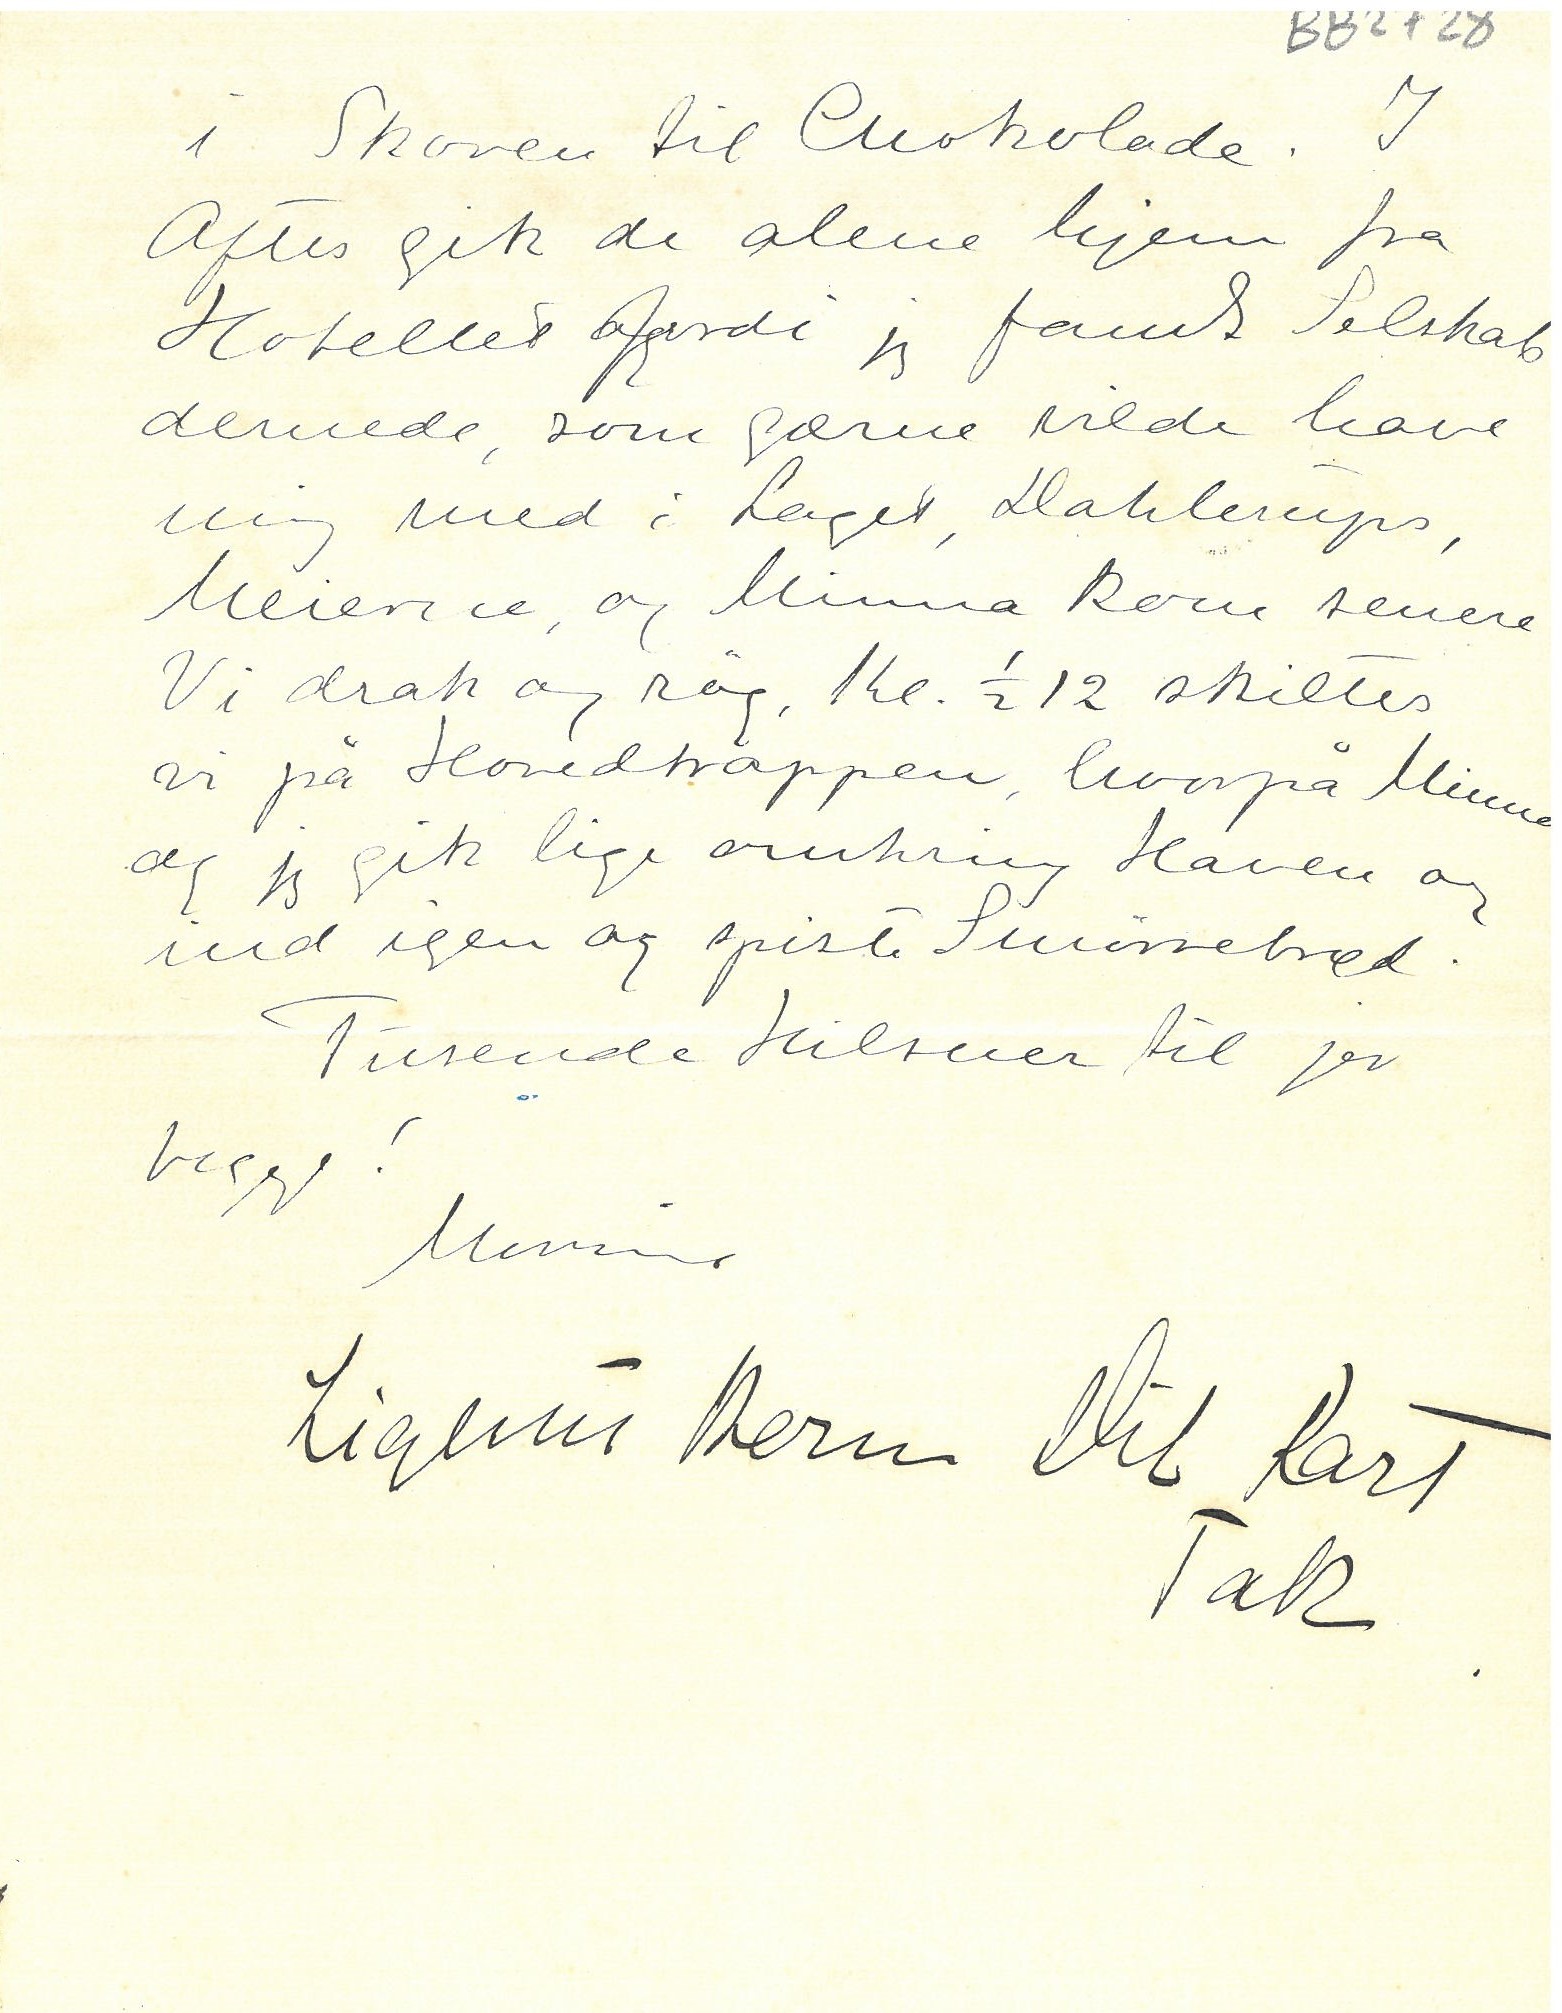 BB2728
i Skoven til Chokolade. I
Aftes gik de alene hjem fra
Hotellet fordi jeg fandt Selskab
dernede, som gærne vilde have
mig med i Laget, Dahlerups,
Meierne, og Minna kom senere
Vi drak og røg, Kl. ½12 skiltes
vi på Hovedtrappen, hvorpå Minna
og jeg gik lige omkring Haven og
ind igen og spiste Smörrebrød.
Tusende Hilsner til jer
begge!
Tak